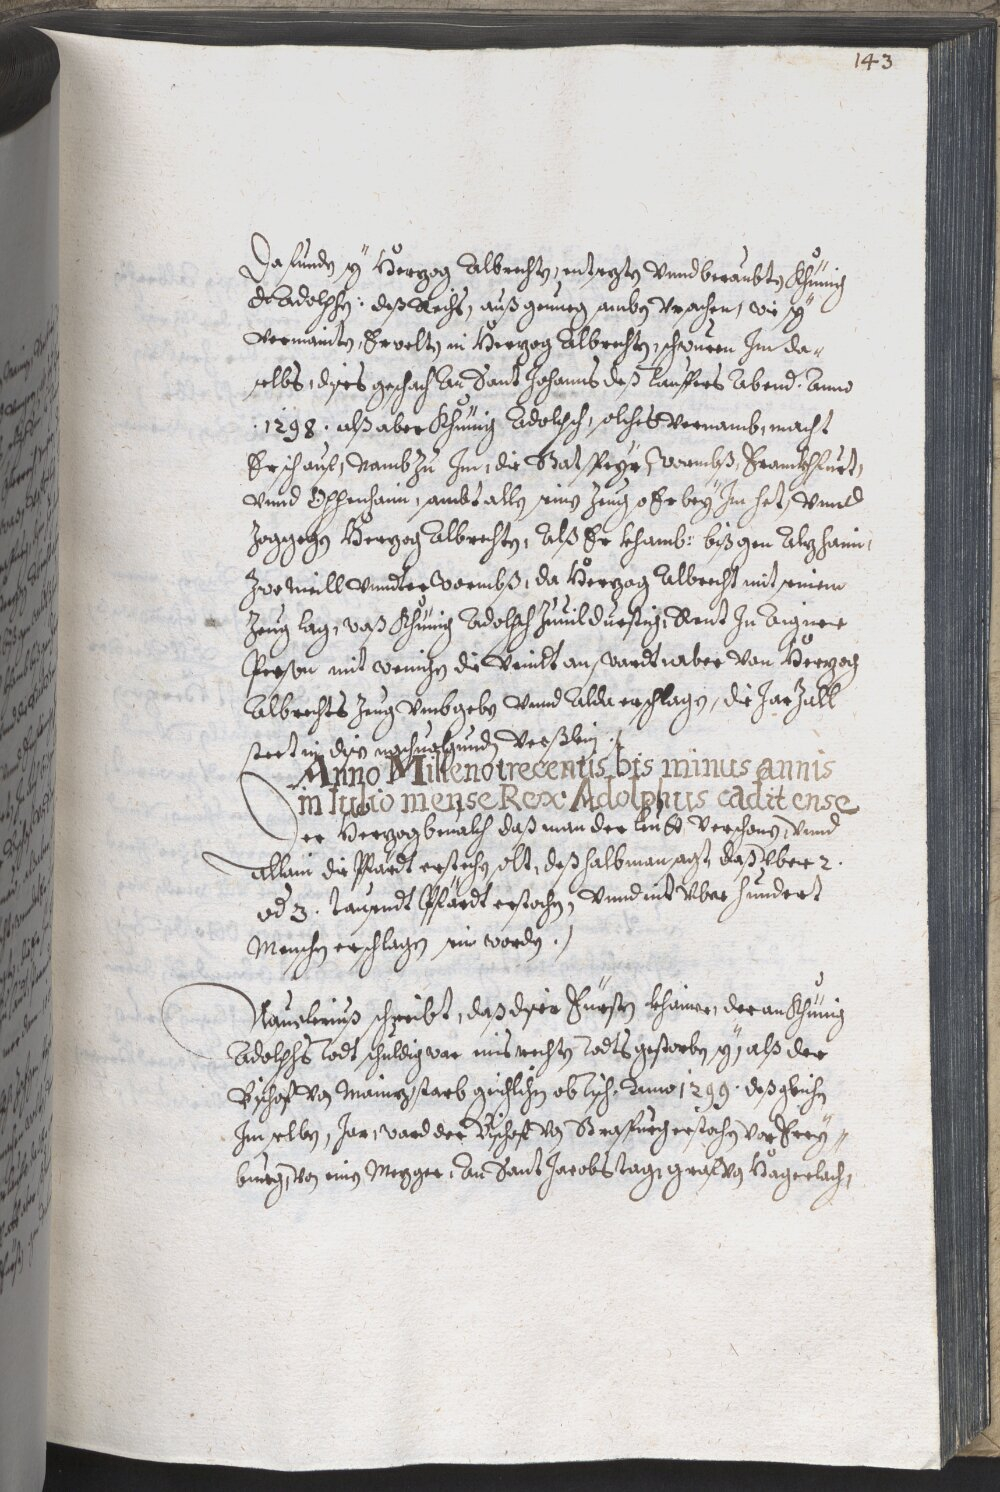 143
Da funden sÿ Herzog Albrechten, entsezten vnnd beraubten Khünig
Adolphen: deß Reichs, auß genueg vrsachen, wie sÿ
vermainten, Erwelten in Herzog Albrechten, schwuren Im da-
selbs, dises geschach An Sant Johanns deß Tauffers Abend. Anno
.1298. alß aber Khünig Adolph, solches vernamb, macht
Er sich auf, Namb Zu Im, die Stat Speyr, Wormbß, Frankhfurt,
vnnd Oppenhaim, sambt allen seinen Zeug so Er beÿ Im het, vnnd
Zog gegen Herzog Albrechten, Alß Er khamb: biß gen Alzhaim,
Zwo Meill vnndter Wormbß, da Herzog Albrecht mit seinem
Zeug lag, waß Khünig Adolph Zuuil durstig, Rent In Aigner
Person mit wenigen die Veindt an, wardt aber von Herzog
Albrechts Zeug vmbgeben vnnd Alda erschlagen, die Jar Zall
steet in disen nachuolgunden Verßlein ./.
Anno Milleno trecentis bis minus annis
in Iulio mense Rex: Adolphus cadit ense
Der Herzog beualch daß man der leüth verschone, vnnd
Allain die Pfärdt erstechen solt, deßhalb man sagt, daß Vber 2.
od 3. Tausendt Pfärdt erstochen, vnnd nit Vber hundert
Menschen erschlagen sein worden ./
Nauclerius schreibt, daß diser Fürsten khainer, der an Khünig
Adolphs Todt schuldig war eines rechten Todts gestorben seÿ, alß der
Bischof von Mainz, starb gächlichen ob Tisch. Anno 1299. deßgleichen
Im selben, Jar, ward der Bischof von Straßburg erstochen vor Freÿ-
burg, von einem Mezger, An Sant Jacobs tag, graf von Hagerlach,